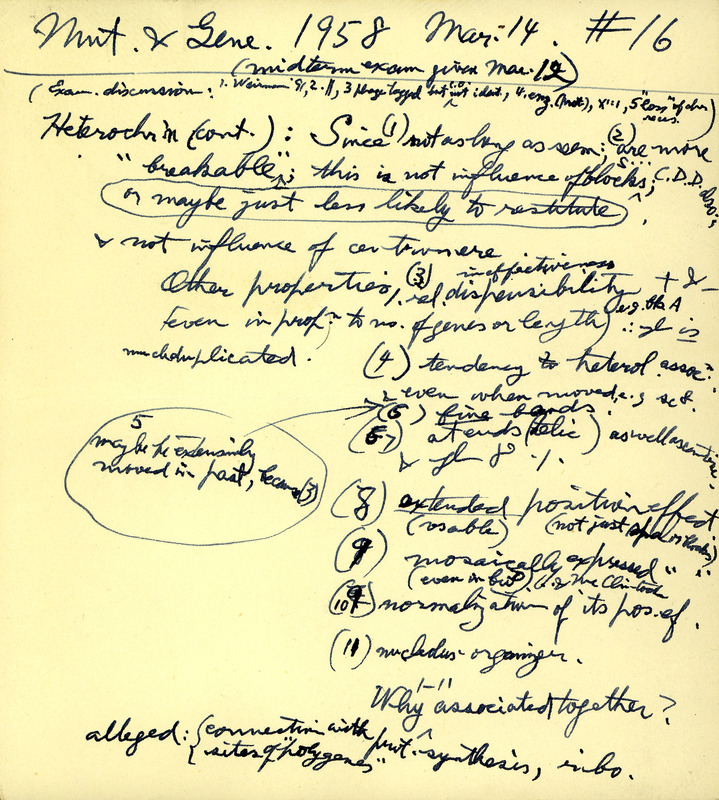 Mut. & Gene. 1958 Mar. 14. #16
(midterm exam given Mar. 12)
(Exam. discussion: 1. Weinman 2. 3 phage tagged but not ident., 5 "loss" of chr
recess.
Heterochr'n (cont.): Since (1) not as long as seem; (2) are more
"breakable"; this is not influence of blocks; C.D.D. also;
or maybe just less likely to restitute
& not influence of centromere
Other properties, (3) rel. dispensibility + & -
ineffectiveness
(even in prop'n to no. of genes or length) e.g. bb. A ∴ is
much duplicated. (4) tendency to heterol. assoc'n.
even when moved, e.g. sc8.
(6) fine bands.
5
may be extensively
moved in past, because (3)
(7) at ends (telic) as well as centric
(8) extended position effect
(visable) (not just)
(9) mosaically expressed " "
(even in) e.g. McClintock
(10) normalization of its pos. ef.
(11) nucleolus-organizer.
1-11
Why associated together?
alleged: { connection with prot.-synthesis, ribo.
{ sites of "polygenes"